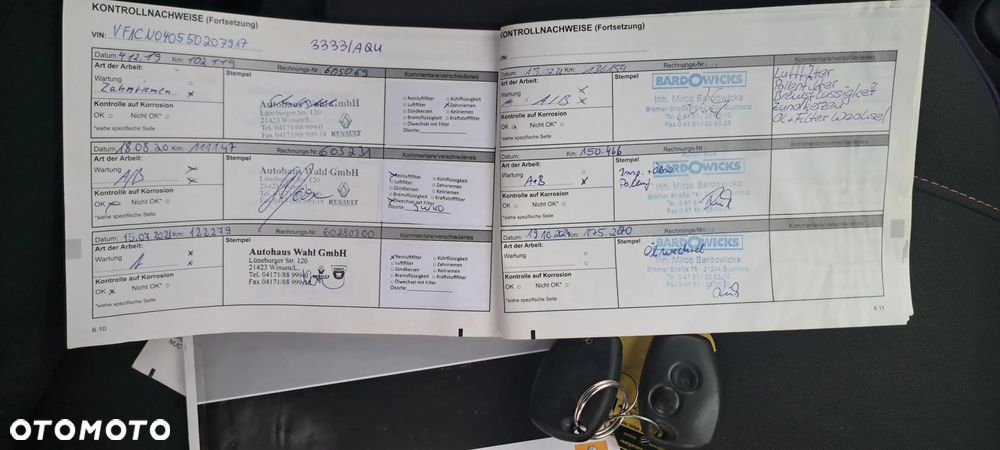 KONTROLLNACHWEISE (Fortsetzung)
VIN: VF1CN040550207917 3333/AQU
Datum: 4.12.19 Km: 102 119 Rechnungs-Nr.: 605069 Kommentare/verschiedenes
Art der Arbeit:
Stempel
Wartung
Zahnriemen x
Kontrolle auf Korrosion
OK □ Nicht OK* □
*siehe spezifische Seite
Autohaus Wahl GmbH
Lüneburger Str. 120
21423 Winsen/L.
Tel. 04171/88 999-0
Fax 04171/88 999-18 RENAULT
□ Reinluftfilter □ Kühlflüssigkeit
□ Luftfilter □ Zahnriemen
□ Zündkerzen □ Keilriemen
□ Bremsflüssigkeit □ Kraftstofffilter
□ Ölwechsel mit Filter
Ölsorte:
Datum: 18.08.20 Km: 111147 Rechnungs-Nr.: 603231 Kommentare/verschiedenes
Art der Arbeit:
Stempel
Wartung x
A/B x
Kontrolle auf Korrosion
OK x Nicht OK* □
*siehe spezifische Seite
Autohaus Wahl GmbH
Lüneburger Str. 120
21423 Winsen/L.
RENAULT
x Reinluftfilter □ Kühlflüssigkeit
□ Luftfilter □ Zahnriemen
□ Zündkerzen □ Keilriemen
□ Bremsflüssigkeit □ Kraftstofffilter
x Ölwechsel mit Filter
Ölsorte: 5W40
Datum: 15.07.2021 Km: 122279 Rechnungs-Nr.: 60280300 Kommentare/verschiedenes
Art der Arbeit:
Stempel
Wartung x
A x
Kontrolle auf Korrosion
OK x Nicht OK* □
*siehe spezifische Seite
Autohaus Wahl GmbH
Lüneburger Str. 120
21423 Winsen/L.
Tel. 04171/88 999-0
Fax 04171/88 999-18
x Reinluftfilter □ Kühlflüssigkeit
□ Luftfilter □ Zahnriemen
□ Zündkerzen □ Keilriemen
□ Bremsflüssigkeit □ Kraftstofffilter
□ Ölwechsel mit Filter
Ölsorte:
6.10
KONTROLLNACHWEISE (Fortsetzung)
VIN:
Datum: Km: 136154 Rechnungs-Nr.: Kommentare/verschiedenes
Art der Arbeit:
Stempel
Wartung x
A/B x
Kontrolle auf Korrosion
OK Nicht OK* □
*siehe spezifische Seite
BARDOWICKS
Inh. Mirco Bardowicks
Luftfilter
Pollenfilter
Bremsflüssigkeit
Zündkerzen
Öl+Filter Wechsel
Datum: Km: 150.466 Rechnungs-Nr. Kommentare/verschiedenes
Art der Arbeit:
Stempel
Wartung
A+B x
Kontrolle auf Korrosion
OK □ Nicht OK* □
*siehe spezifische Seite
BARDOWICKS
Inh. Mirco Bardowicks
Datum: 19.10.2024 Km: 175.270 Rechnungs-Nr. Kommentare/verschiedenes
Art der Arbeit:
Stempel
Wartung
Kontrolle auf Korrosion
OK □ Nicht OK* □
*siehe spezifische Seite
Ölwechsel
BARDOWICKS
Inh. Mirco Bardowicks
6.11
OTOMOTO